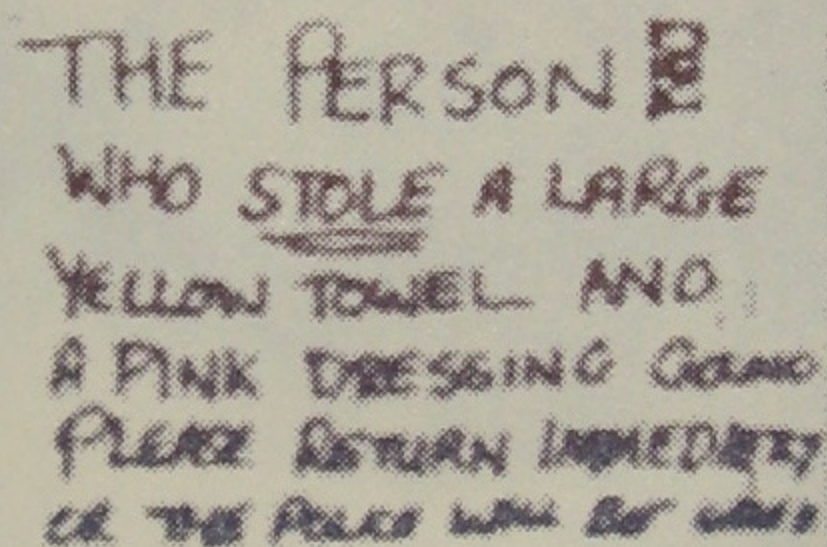 THE PERSON
WHO STOLE A LARGE
YELLOW TOWEL AND
A PINK DRESSING
PLEASE RETURN
OR THE POLICE WILL BE